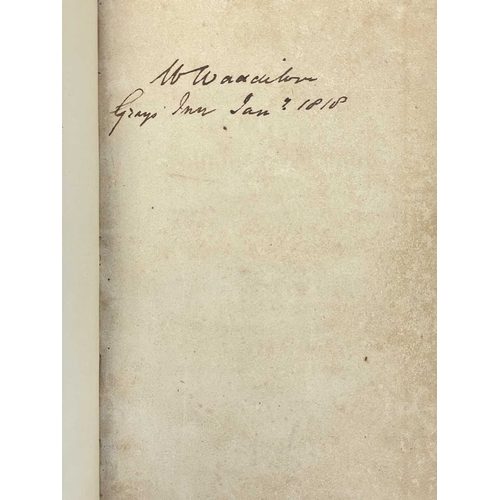 W Waddilove
Grays Inn Jan.y 1818